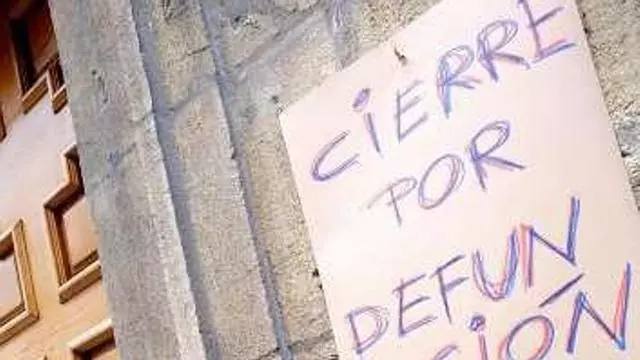 CiERRE
POR
DEFUN
CiÓN